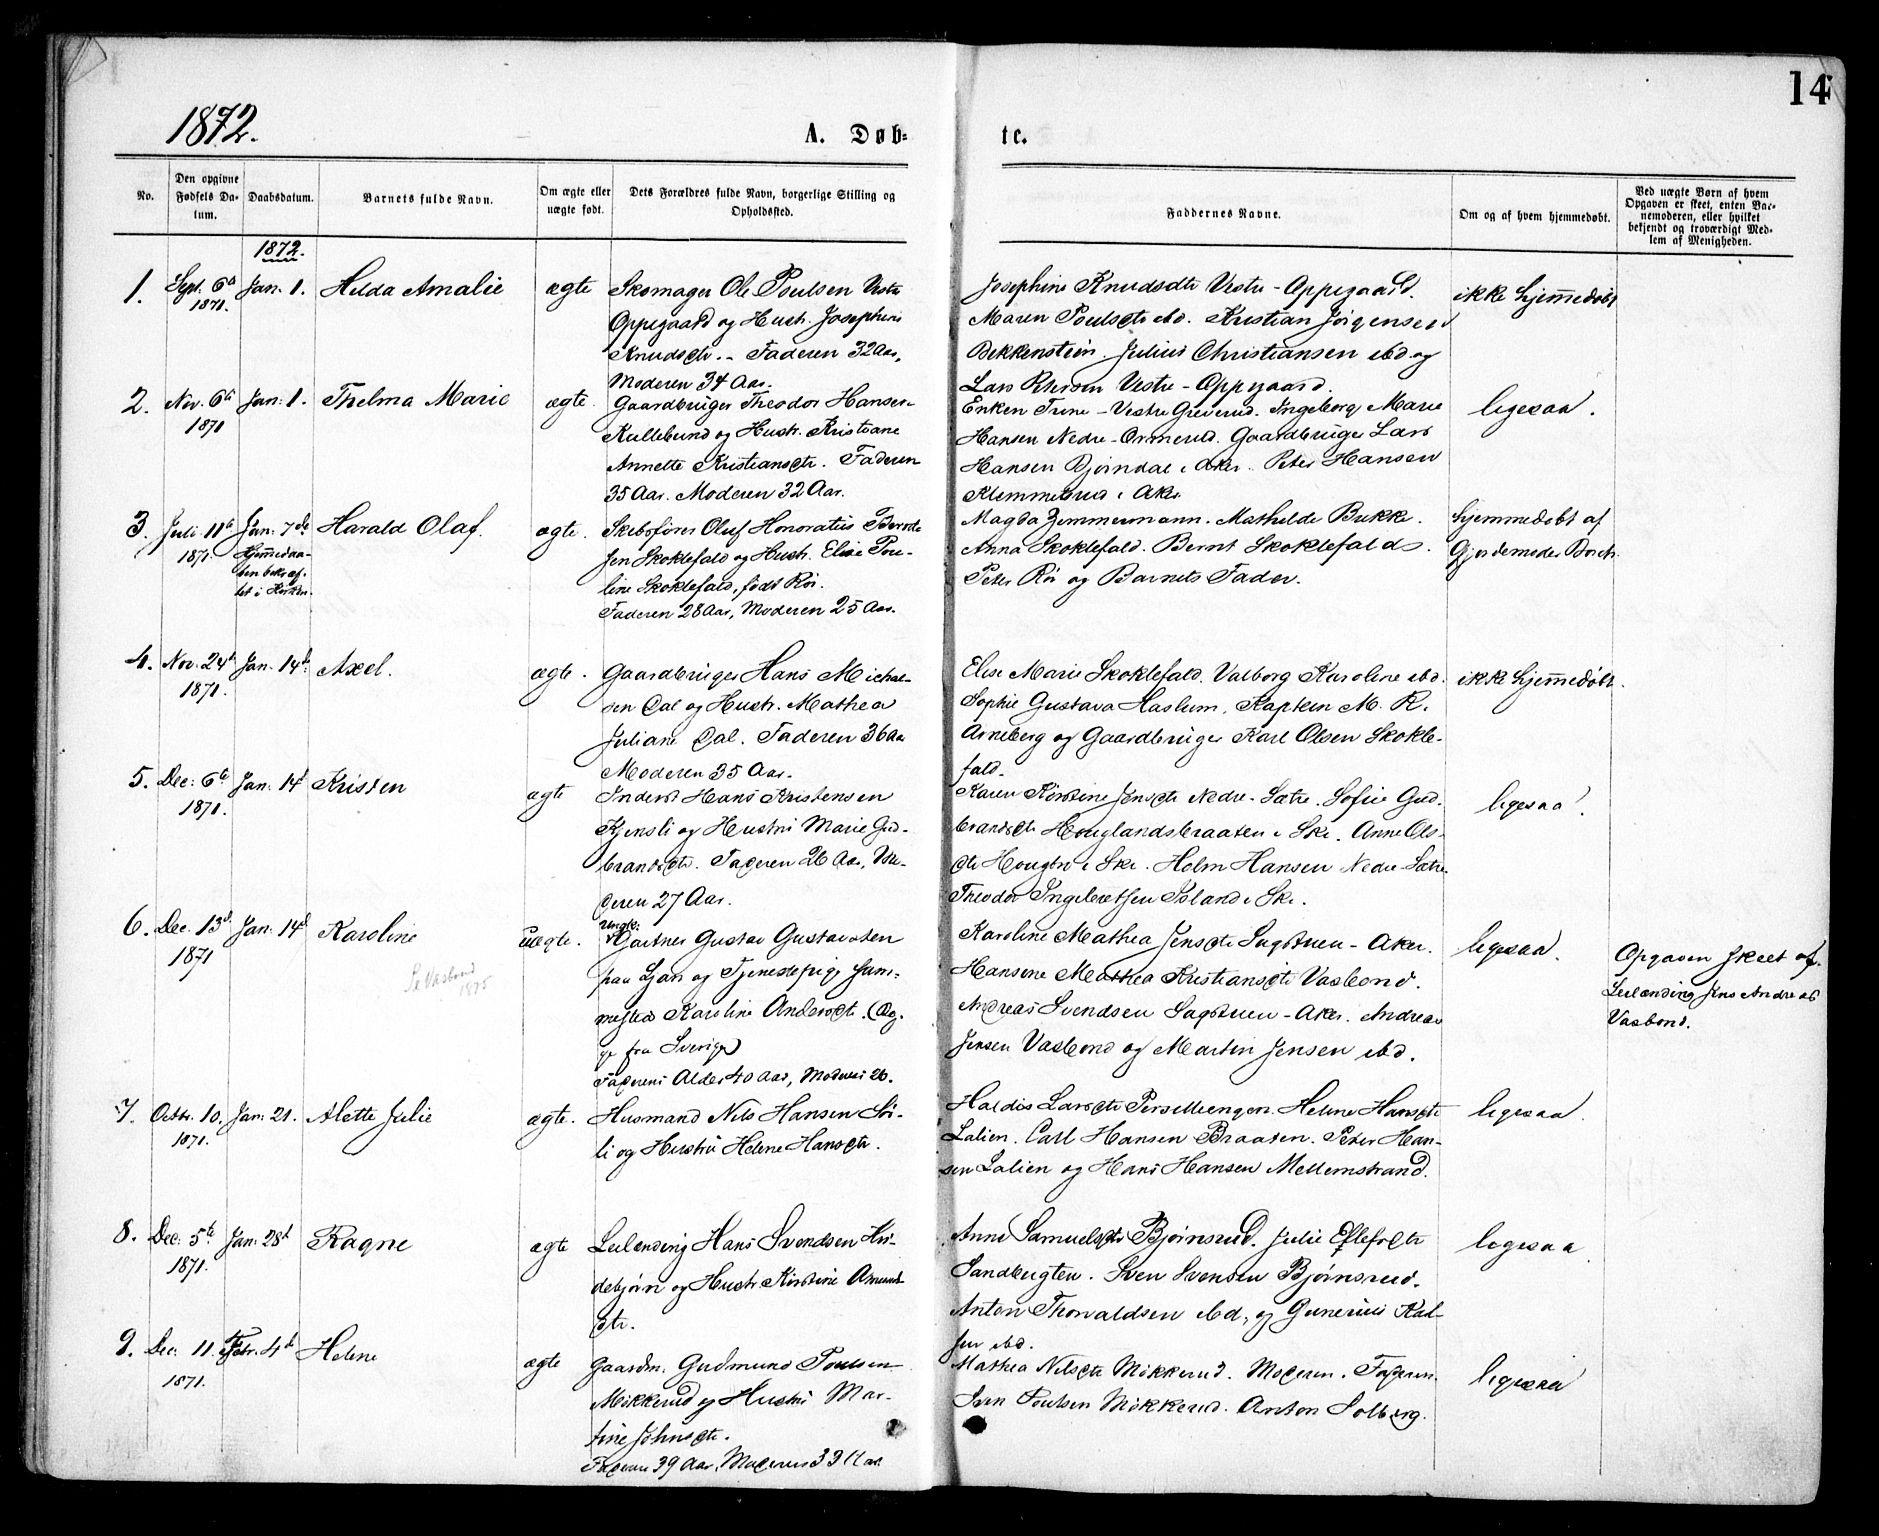 14
1872.
A. Døb-
te.
No.
Den opgivne Fødsels Da-
tum.
Daabsdatum.
Barnets fulde Navn.
Om ægte eller
uægte født.
Dets Forældres fulde Navn, borgerlige Stilling og
Opholdssted.
Faddernes Navne.
Om og af hvem hjemmedøbt.
Ved uægte Børn af hvem
Opgaven er skeet, enten Bar-
nemoderen, eller hvilket
bekjendt og troværdigt Med-
lem af Menigheden.
1872.
1. Sept. 6te 1871. Jan. 1. Hilda Amalie ægte
Skomager Ole Poulsen Vestre
Oppegaard og Hustr. Josephine
Knudsdtr. - Faderen 32 Aar,
Moderen 34 Aar.
Josephine Knudsdtr Vestre-Oppegaard.
Maren Poulsdtr ibd. Kristian Jørgensen
Bekkensteen. Julius Christiansen ibd og
Lars Vestre-Oppegaard.
ikke hjemmedøbt
2. Nov. 6te 1871 Jan: 1. Thelma Marie ægte.
Gaardbruger Theodor Hansen
Kullebund og Hustr. Kristiane
Annette Kristiansdtr. Faderen
35 Aar. Moderen 32 Aar.
Enken Trine - Vestre Greverud. Ingeborg Marie
Hansen Nedre-Ormerud. Gaardbruger Lars
Hansen Bjørndal i Aker. Peter Hansen
Klemmetsrud i Aker
ligesaa.
3. Juli 11te 1871. Jan: 7de
Hjemmedaa-
ben bekræf-
tet i Kirken.
Harald Olaf. ægte.
Skibsfører Oluf Honoratius Bernt
sen Skoklefald og Hustr. Elise Pou-
line Skoklefald, født Rør.
Faderen 28 Aar, Moderen 25 Aar.
Magda Zemmermann. Mathilde Bukke.
Anna Skoklefald. Bernt Skoklefald.
Peter Rør og Barnets Fader.
hjemmedøbt af
Gjordemoder
4. Nov. 24de 1871. Jan. 14de Axel. ægte.
Gaardbruger Hans Michal-
sen Dal og Hustr. Mathea
Juliane Dal. Faderen 36 Aar
Moderen 35 Aar.
Elise Marie Skoklefald. Valborg Karoline ibd.
Sophie Gustava Haslum. Kaptein M. R.
Arneberg og Gaardbruger Karl Olsen Skokle-
fald.
ikke hjemmedøbt.
5. Dec: 6te 1871. Jan: 14de Kristen ægte
Inderst Hans Kristensen
Kjensli og Hustru Marie Gud-
brandsdtr. Faderen 26 Aar, Mo-
deren 27 Aar.
Karen Kirstine Jensdtr Nedre-Sætre. Sofie Gud-
brandsdtr Houglandsbraaten i Ski. Anne Ols-
dtr Hougen i Ski. Holm Hansen Nedre-Sætre.
Theodor Ingebretsen i Ski.
ligesaa.
6. Dec. 13de 1871 Jan: 14de Karoline uægte.
Se Vasbond
1875
Ungk.
Gartner Gustav Gustavsen
paa Ljan og Tjenestepige Jom-
Karoline Andersdtr. (Beg-
ge fra Sverige)
Faderens Alder 40 Aar, Moderens 26.
Karoline Mathea Jensdtr Sagstuen - Aker.
Hansine Mathea Kristiansdtr Vasbond.
Andreas Svendsen Sagstuen - Aker. Andreas
Jensen Vasbond og Martin Jensen ibd.
ligesaa.
Opgaven skeet af
Leilænding Jens Andreas
Vasbond.
7. Octbr. 10. 1871. Jan: 21. Alette Julie ægte.
Husmand Nils Hansen Sø-
li og Hustru Helene Hansdtr.
Haldis Larsdtr Persillengen. Helene Hansdtr
Lalien. Carl Hansen Braaten. Peter Han-
sen Lalien og Hans Hansen Mellemstrand.
ligesaa.
8. Dec: 5te 1871. Jan: 28de Ragne ægte
Leilænding Hans Svendsen Hvi-
debjørn og Hustr Kirstine Amund-
dtr.
Anne Samuelsdtr Bjørnsrud. Julie
Sandbugten. Sven Svensen Bjørnsrud.
Anton Thorvaldsen ibd, og Gunerius Karl-
sen ibd.
ligesaa
9. Dec: 11. 1871. Febr. 4de Helene ægte
Gaardm. Gudmund Poulsen
Mikkerud og Hustru Mar-
tine Johnsdtr.
Faderen 39 Aar, Moderen 33 Aar.
Mathea Nilsdtr Mikkerud. Moderen. Faderen.
Iven Poulsen Mikkerud. Anton Solberg.
ligesaa